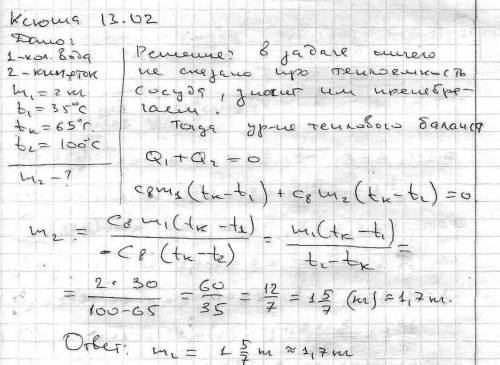 Ксюша 13.02
Дано:
1-хол. вода
2-кипяток
m₁ = 2 кг
t₁ = 35°C
tк = 65°C
t₂ = 100°C
m₂ - ?
Решение: в задаче ничего
не сказано про теплоемкость
сосуда, значит им пренебре-
гаем.
Тогда ур-ие теплового баланса
Q₁ + Q₂ = 0
cв m₁ (tк - t₁) + cв m₂ (tк - t₂) = 0
m₂ = cв m₁ (tк - t₁) / -cв (tк - t₂) = m₁ (tк - t₁) / t₂ - tк =
= 2 · 30 / 100 - 65 = 60/35 = 12/7 = 1 5/7 (т) ≈ 1,7 т.
Ответ: m₂ = 1 5/7 т ≈ 1,7 т